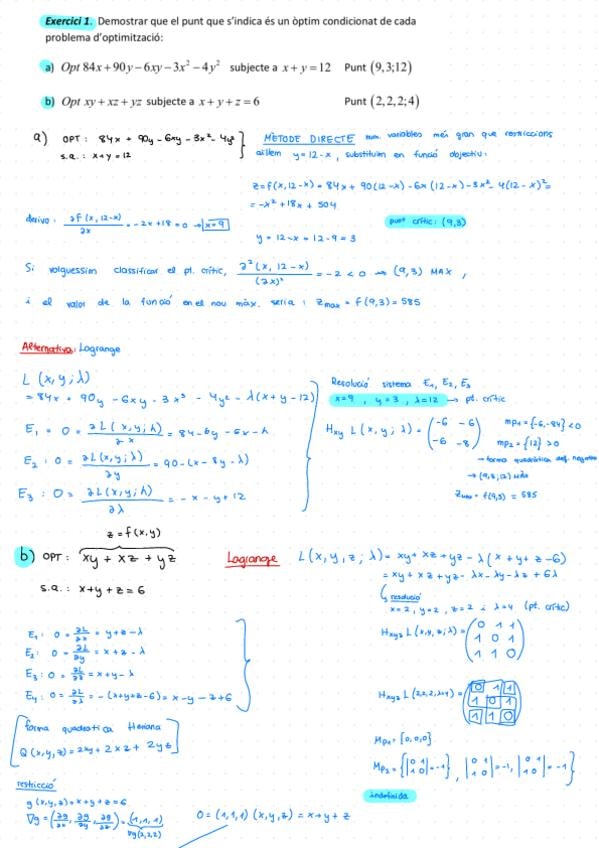 Exercici 1. Demostrar que el punt que s'indica és un òptim condicionat de cada
problema d'optimització:
a) Opt 84x + 90y − 6xy − 3x² − 4y² subjecte a x + y = 12 Punt (9,3;12)
b) Opt xy + xz + yz subjecte a x + y + z = 6 Punt (2,2,2;4)
a) OPT : 84x + 90y - 6xy - 3x² - 4y²
s.a. : x+y = 12
MÈTODE DIRECTE num. variables més gran que restriccions
aïllem y = 12-x , substituïm en funció objectiu:
z = f(x,12-x) = 84x + 90(12-x) - 6x(12-x) - 3x² - 4(12-x)² =
= -x² + 18x + 504
derivo : ∂f(x, 12-x)/∂x = -2x + 18 = 0 → x=9
punt crític: (9,3)
y = 12-x = 12-9 = 3
Si volguessim classificar el pt. crític, ∂²(x, 12-x)/(∂x)² = -2 < 0 → (9,3) MAX ,
i el valor de la funció en el nou màx. seria : Zmax = f(9,3) = 585
Alternativa: Lagrange
L (x,y;λ)
= 84x + 90y - 6xy - 3x² - 4y² - λ(x+y-12)
E₁ = 0 = ∂L(x,y;λ)/∂x = 84-6y-6x-λ
E₂ : 0 = ∂L(x,y;λ)/∂y = 90-6x-8y-λ
E₃ : 0 = ∂L(x,y;λ)/∂λ = -x-y+12
Resolució sistema E₁, E₂, E₃
x=9 , y=3 , λ=12 → pt. crític
Hxy L(x,y;λ) = (-6 -6
-6 -8)
mp₁ = {-6,-8} < 0
mp₂ = {12} > 0
→ forma quadràtica def. negativa
→ (9,3;12) màx
Zmàx = f(9,3) = 585
z = f(x,y)
b) OPT : xy + xz + yz
s.a. : x+y+z = 6
Lagrange L(x,y,z;λ) = xy + xz + yz - λ(x+y+z-6)
= xy + xz + yz - λx - λy - λz + 6λ
resolució
x=2, y=2, z=2 i λ=4 (pt. crític)
E₁: 0 = ∂L/∂x = y+z-λ
E₂: 0 = ∂L/∂y = x+z-λ
E₃: 0 = ∂L/∂z = x+y-λ
E₄: 0 = ∂L/∂λ = -(x+y+z-6) = x-y-z+6
Hxyz L(x,y,z;λ) = (0 1 1
1 0 1
1 1 0)
Hxyz L(2,2,2,λ=4) = (0 1 1
1 0 1
1 1 0)
forma quadràtica Hessiana
Q(x,y,z) = 2xy + 2xz + 2yz
Mp₁ = {0,0,0}
Mp₂ = {|0 1
1 0| = -1}, |0 1
1 0| = -1, |0 1
1 0| = -1}
indefinida
restricció
g(x,y,z) = x+y+z = 6
∇g = (∂g/∂x, ∂g/∂y, ∂g/∂z) = (1,1,1)
∇g(2,2,2)
0 = (1,1,1) (x,y,z) = x+y+z